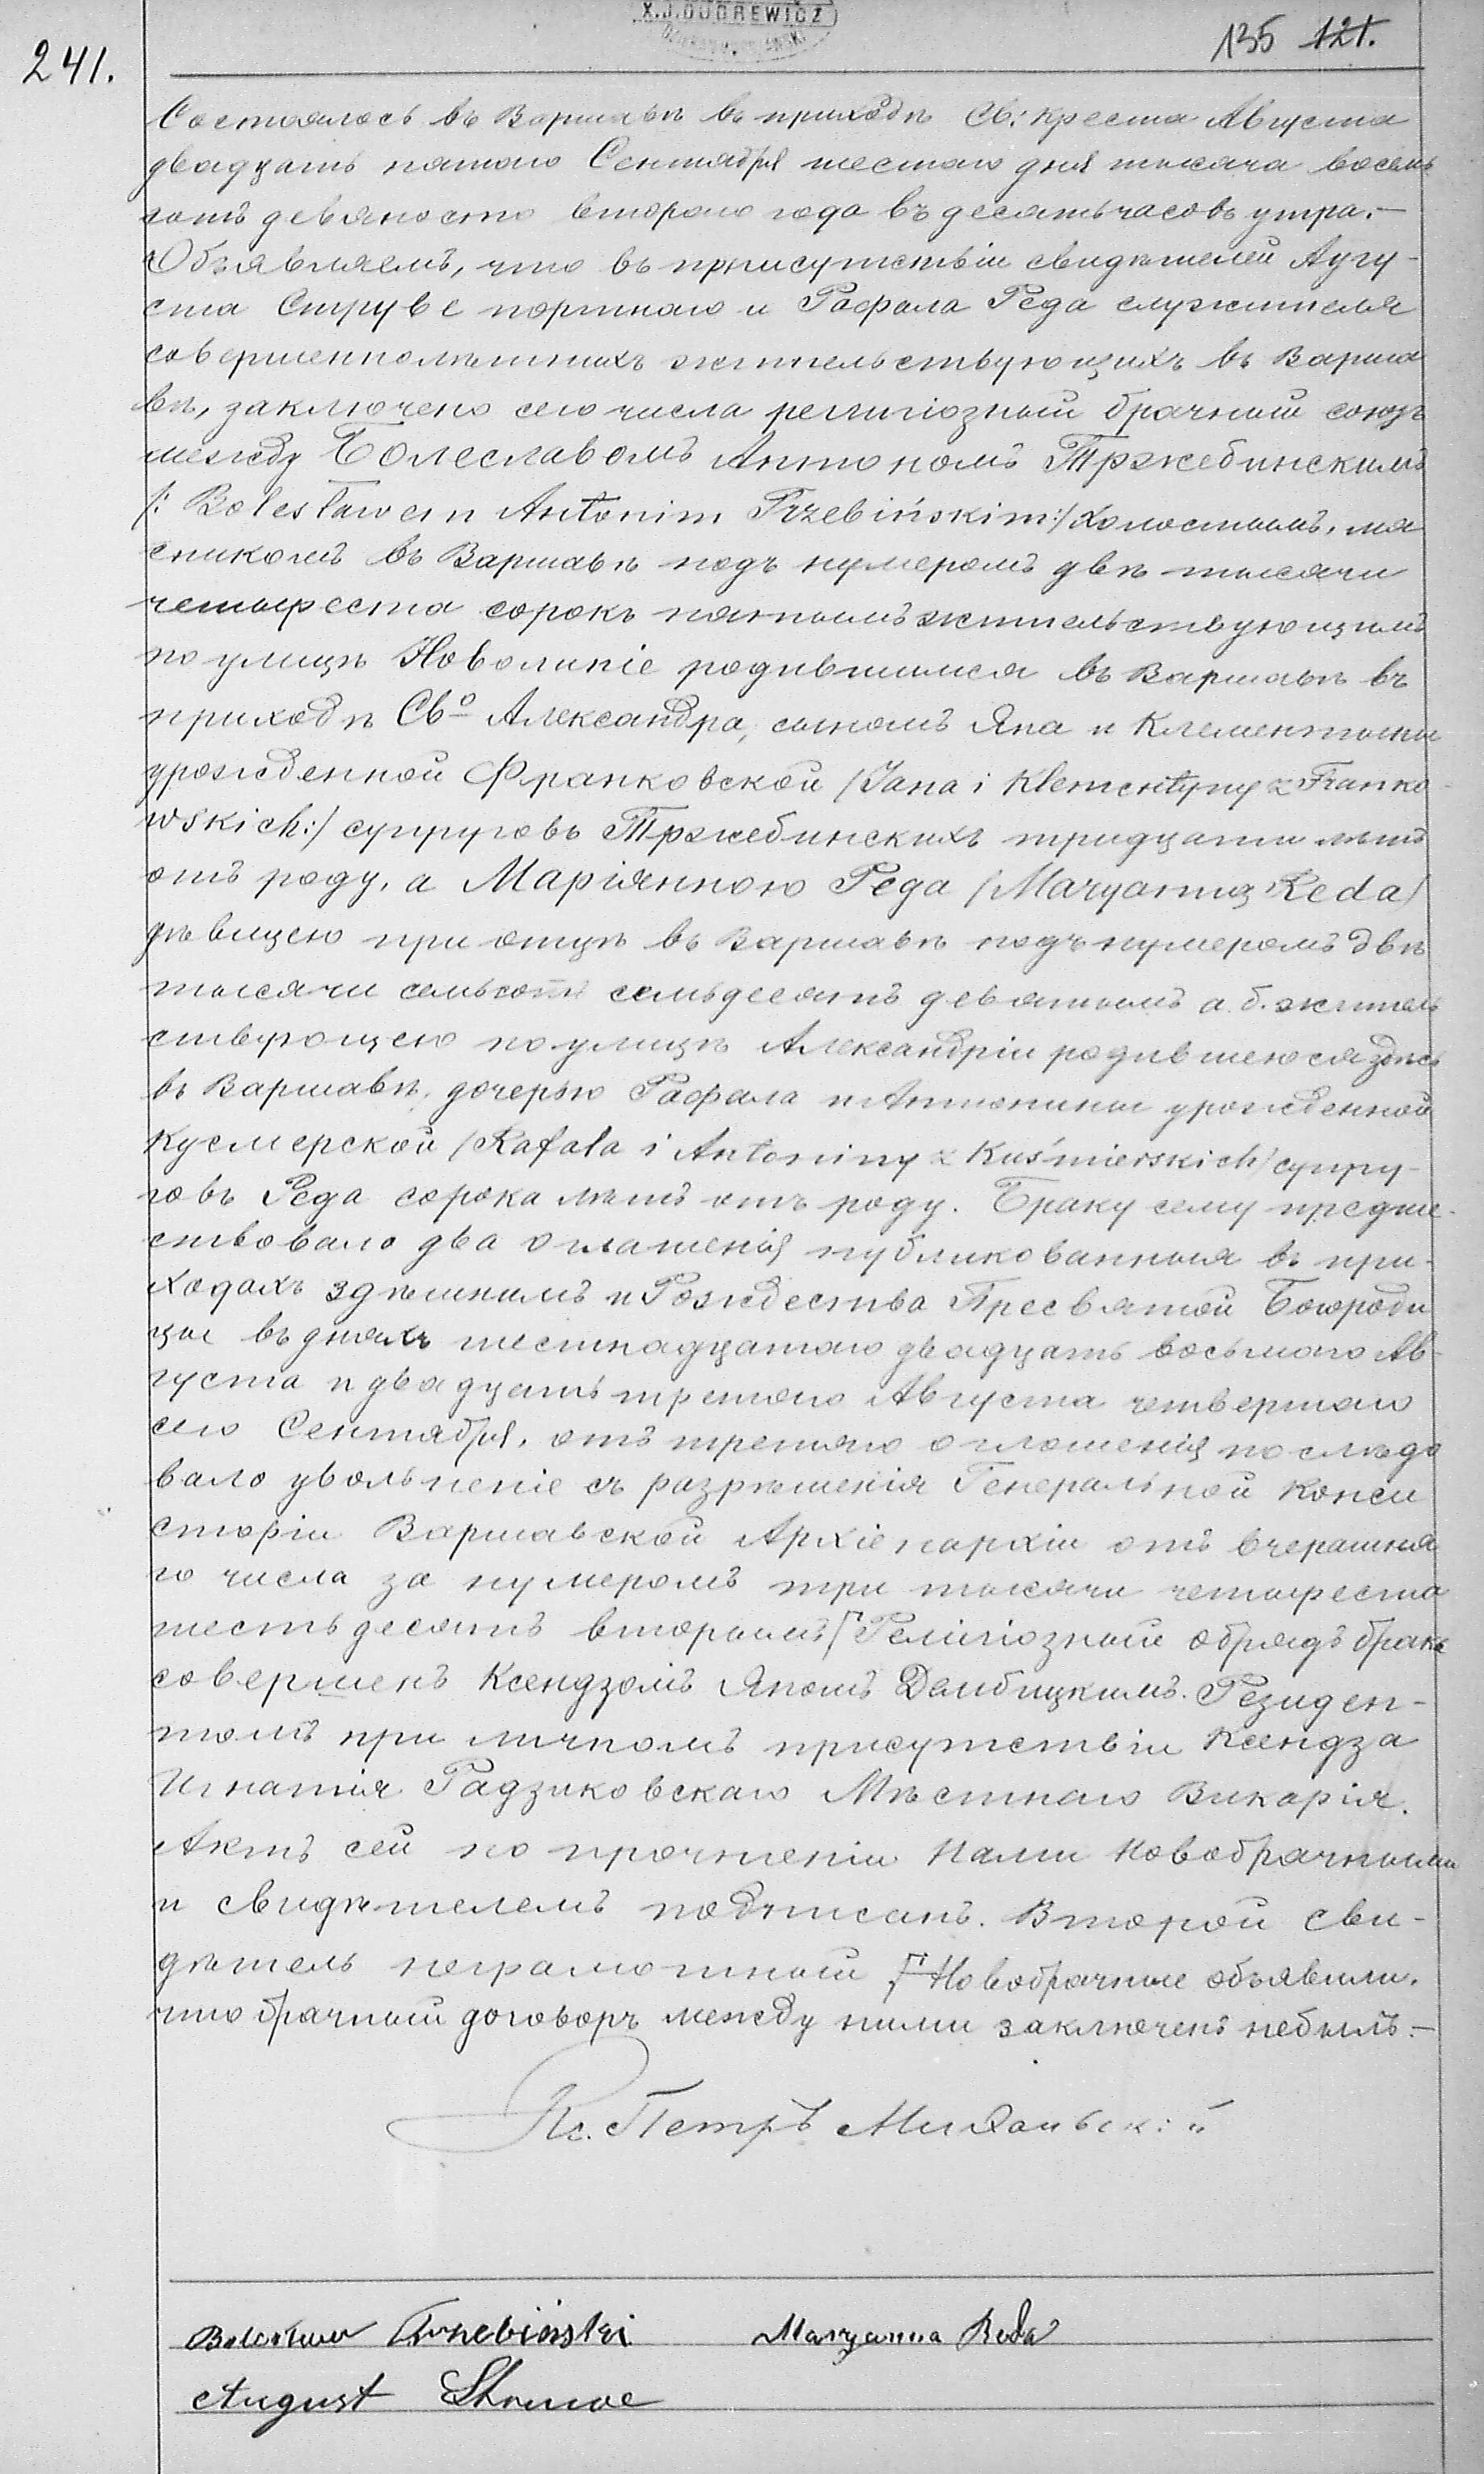 X.J.DUDREWICZ
135 121.
241.
Состоялось въ Варшавѣ въ приходѣ Св: Креста Августа
двадцать пятого Сентября шестаго дня тысяча восемь
сотъ девяносто второго года въ десять часовъ утра.—
Объявляемъ, что въ присутствіи свидѣтелей Аугу-
ста Струве портнаго и Рафала Реда служителя
совершеннолѣтнихъ жительствующихъ въ Варша
вѣ, заключено сего числа религіозный брачный союзъ
между Болеславомъ Антономъ Тржебинскимъ
/: Bolesławem Antonim Trzebińskim:/ холостымъ, мя
сникомъ въ Варшавѣ подъ нумеромъ двѣ тысячи
четыреста сорокъ пятымъ жительствующимъ
по улицѣ Новолипіе родившимся въ Варшавѣ въ
приходѣ Св⁰ Александра, сыномъ Яна и Клементины
урожденной Франковской /Jana i Klementyny z Franko-
wskich:/ супруговъ Тржебинскихъ тридцати лѣтъ
отъ роду, а Маріянною Реда /Maryanną Reda/
дѣвицею при отцѣ въ Варшавѣ подъ нумеромъ двѣ
тысячи семьсотъ семьдесятъ девятымъ а.б. житель
ствующею по улицѣ Александріи родившеюся здѣсь
въ Варшавѣ, дочерью Рафала и Антонины урожденной
Кусмерской /Rafała i Antoniny z Kuśmierskich/ супру-
говъ Реда сорока лѣтъ отъ роду. Браку сему предше-
ствовало два оглашенія публикованныя въ при-
ходахъ здѣшнимъ и Рождества Пресвятой Богороди
цы въ дняхъ шестнадцатого двадцать восьмого Ав-
густа и двадцать третяго Августа четвертого
сего Сентября, отъ третяго оглашенія послѣдо
вало увольненіе съ разрѣшенія Генеральной Конси
сторіи Варшавской Архіепархіи отъ вчерашня
го числа за нумеромъ три тысячи четыреста
шестьдесятъ вторымъ Религіозный обрядъ брака
совершенъ Ксендзомъ Яномъ Дембицкимъ. Резиден-
томъ при личномъ присутствіи Ксендза
Игнатія Радзиковскаго Мѣстнаго Викарія.
Актъ сей по прочтеніи Нами Новобрачными
и свидѣтелемъ подписанъ. Второй сви-
дѣтель неграмотный Новобрачные объявили,
что брачный договоръ между ними заключенъ небылъ.—
Кс. Петръ
Bolesław Trzebiński Maryanna Reda
August Struwe